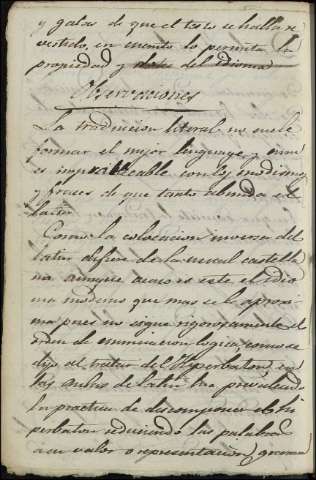 y galas de que el testo se halla re
vestido, en cuanto lo permita la
propiedad y del idioma
Observaciones
La traduccion literal no suele
formar el mejor lenguage, y
es impracticable con los modismos
y frases de que tanto abunda el
latin
Como la colocacion inversa del
latin difiere de la usual castella
na aunque acaso es este el idio
ma moderno que mas se le aproxi
ma pues no sigue rigorosamente el
orden de enunciacion logica, como se
dijo al tratar del Hiperbaton, en
las aulas de latin. ha prevalecido
la practica de descomponer el hi
perbaton reduciendo las palabras
á su valor o representacion grama